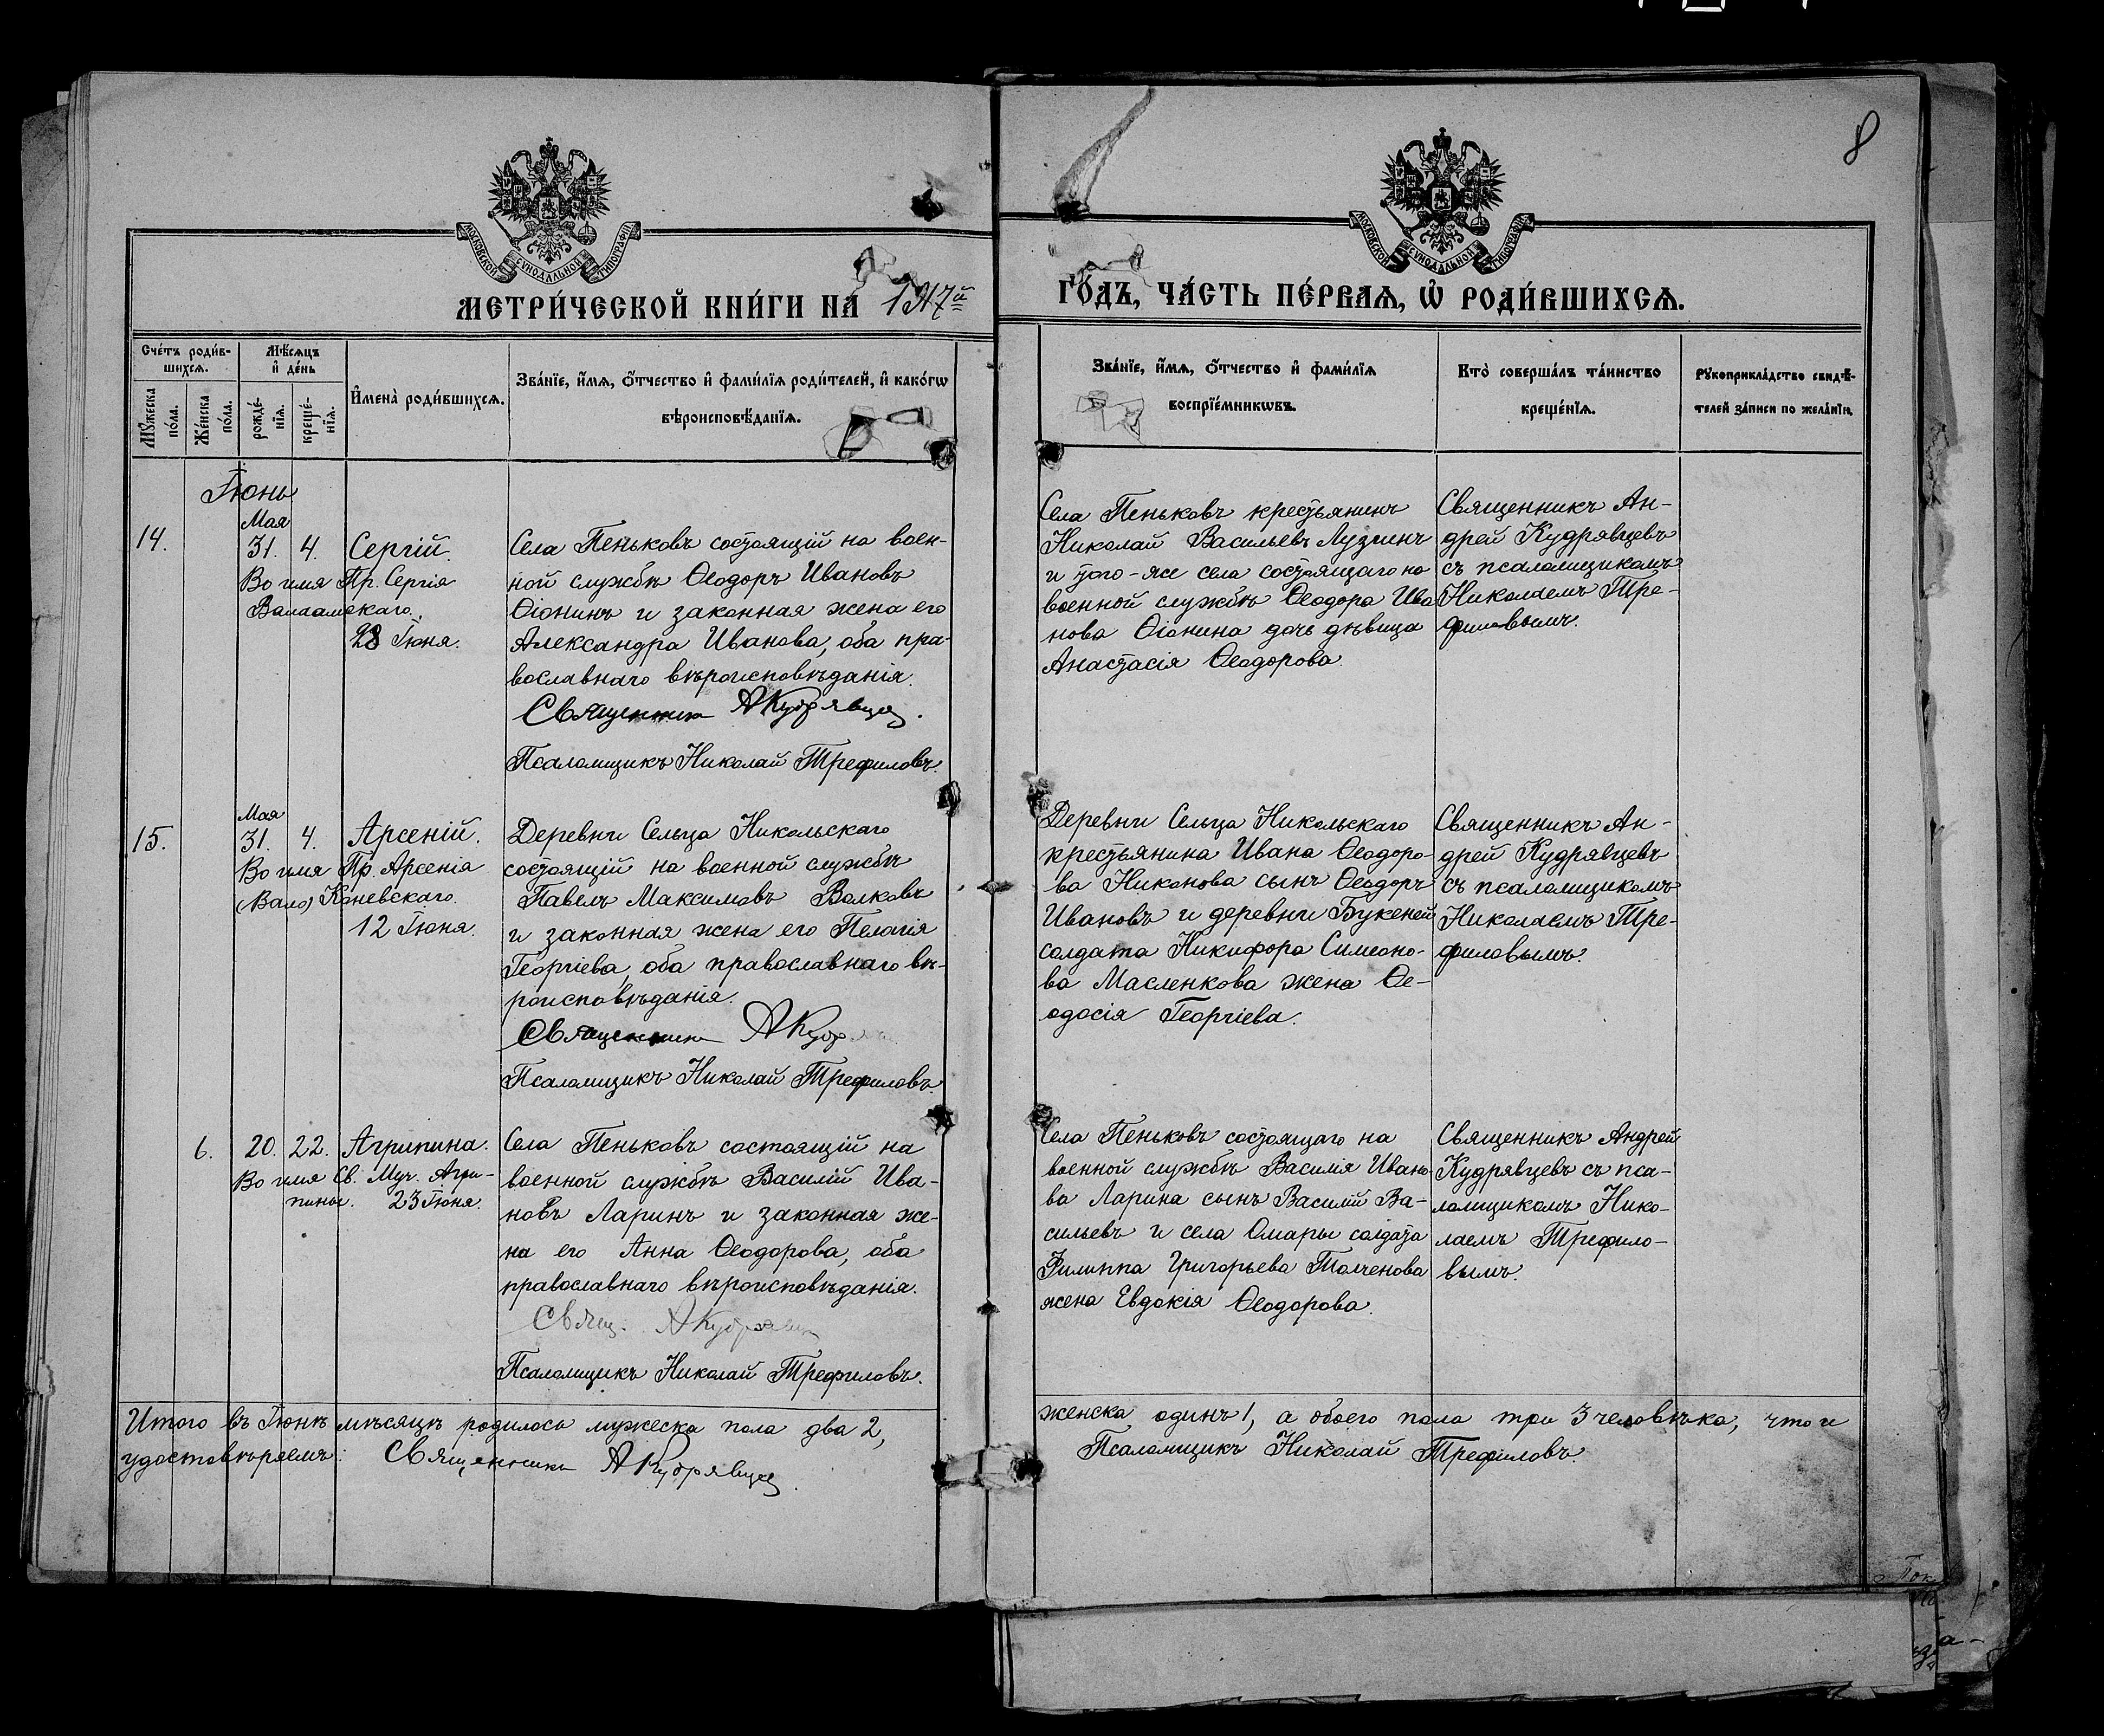 8
МОСКОВСКОЙ СУНОДАЛЬНОЙ ТИПОГРАФІИ
МОСКОВСКОЙ СУНОДАЛЬНОЙ ТИПОГРАФІИ
МЕТРИ́ЧЕСКОЙ КНИ́ГИ НА 1917й
ГО́ДЪ, ЧА́СТЬ ПЕ́РВАЯ, Ѡ҆ РОДИ́ВШИХСЯ.
Сче́тъ роди́в-
шихся.
Мꙋ́жеска по́ла.
Же́нска по́ла.
Мѣ́сяцъ и҆ де́нь
рожде́-нїя.
креще́-нїя.
И҆мена̀ роди́вшихся.
Зва́нїе, и҆́мя, ѻ҆́тчество и҆ фами́лїя роди́телей, и҆ како́гѡ
вѣроисповѣ́данїя.
Зва́нїе, и҆́мя, ѻ҆́тчество и҆ фами́лїя
воспрїе́мникѡвъ.
Кто̀ соверша́лъ та́инство
креще́нїя.
Рꙋкоприкла́дство свидѣ́-
телей за́писи по жела́нїю.
Іюнь
Мая
14. 31. 4. Сергій.
Во имя Пр. Сергія
Валаамскаго.
28 Іюня.
Села Пеньковъ состоящій на воен-
ной службѣ Ѳеодоръ Ивановъ
Ѳіонинъ и законная жена его
Александра Иванова, оба пра-
вославнаго вѣроисповѣданія.
Священник АКудрявцев.
Псаломщикъ Николай Трефиловъ.
Села Пеньковъ крестьянинъ
Николай Васильевъ Лузгинъ
и того-же села состоящаго на
военной службѣ Ѳеодора Ива
нова Ѳіонина дочь дѣвица
Анастасія Ѳеодорова.
Священникъ Ан-
дрей Кудрявцевъ
съ псаломщикомъ
Николаемъ Тре-
филовымъ.
Мая
15. 31. 4. Арсеній.
Во имя Пр. Арсенія
(Вало) Коневскаго.
12 Іюня.
Деревни Сельца Никольскаго
состоящій на военной службѣ
Павелъ Максимовъ Волковъ
и законная жена его Пелагія
Георгіева, оба православнаго вѣ-
роисповѣданія.
Священник АКудр
Псаломщикъ Николай Трефиловъ.
Деревни Сельца Никольскаго
крестьянина Ивана Ѳеодоро-
ва Никонова сынъ Ѳеодоръ
Ивановъ и деревни Букеней
солдата Никифора Симеоно-
ва Масленкова жена Ѳе-
одосія Георгіева.
Священникъ Ан-
дрей Кудрявцевъ
съ псаломщикомъ
Николаемъ Тре-
филовымъ.
6. 20. 22. Агрипина.
Во имя Св. Муч. Агри-
пины. 23 Іюня.
Села Пеньковъ состоящій на
военной службѣ Василій Ива-
новъ Ларинъ и законная же-
на его Анна Ѳеодорова, оба
православнаго вѣроисповѣданія.
Свящ. АКудрявцев
Псаломщикъ Николай Трефиловъ.
Села Пеньковъ состоящаго на
военной службѣ Василія Ивано-
ва Ларина сынъ Василій Ва-
сильевъ и села Омары солдата
Филиппа Григорьева Толченова
жена Евдокія Ѳеодорова.
Священникъ Андрей
Кудрявцевъ съ пса-
ломщикомъ Нико-
лаемъ Трефило-
вымъ.
Итого въ Іюнѣ мѣсяцѣ родилось мужеска пола два 2,
женска одинъ 1, а обоего пола три 3 человѣка, что и
удостовѣряемъ: Священник АКудрявцев.
Псаломщикъ Николай Трефиловъ.